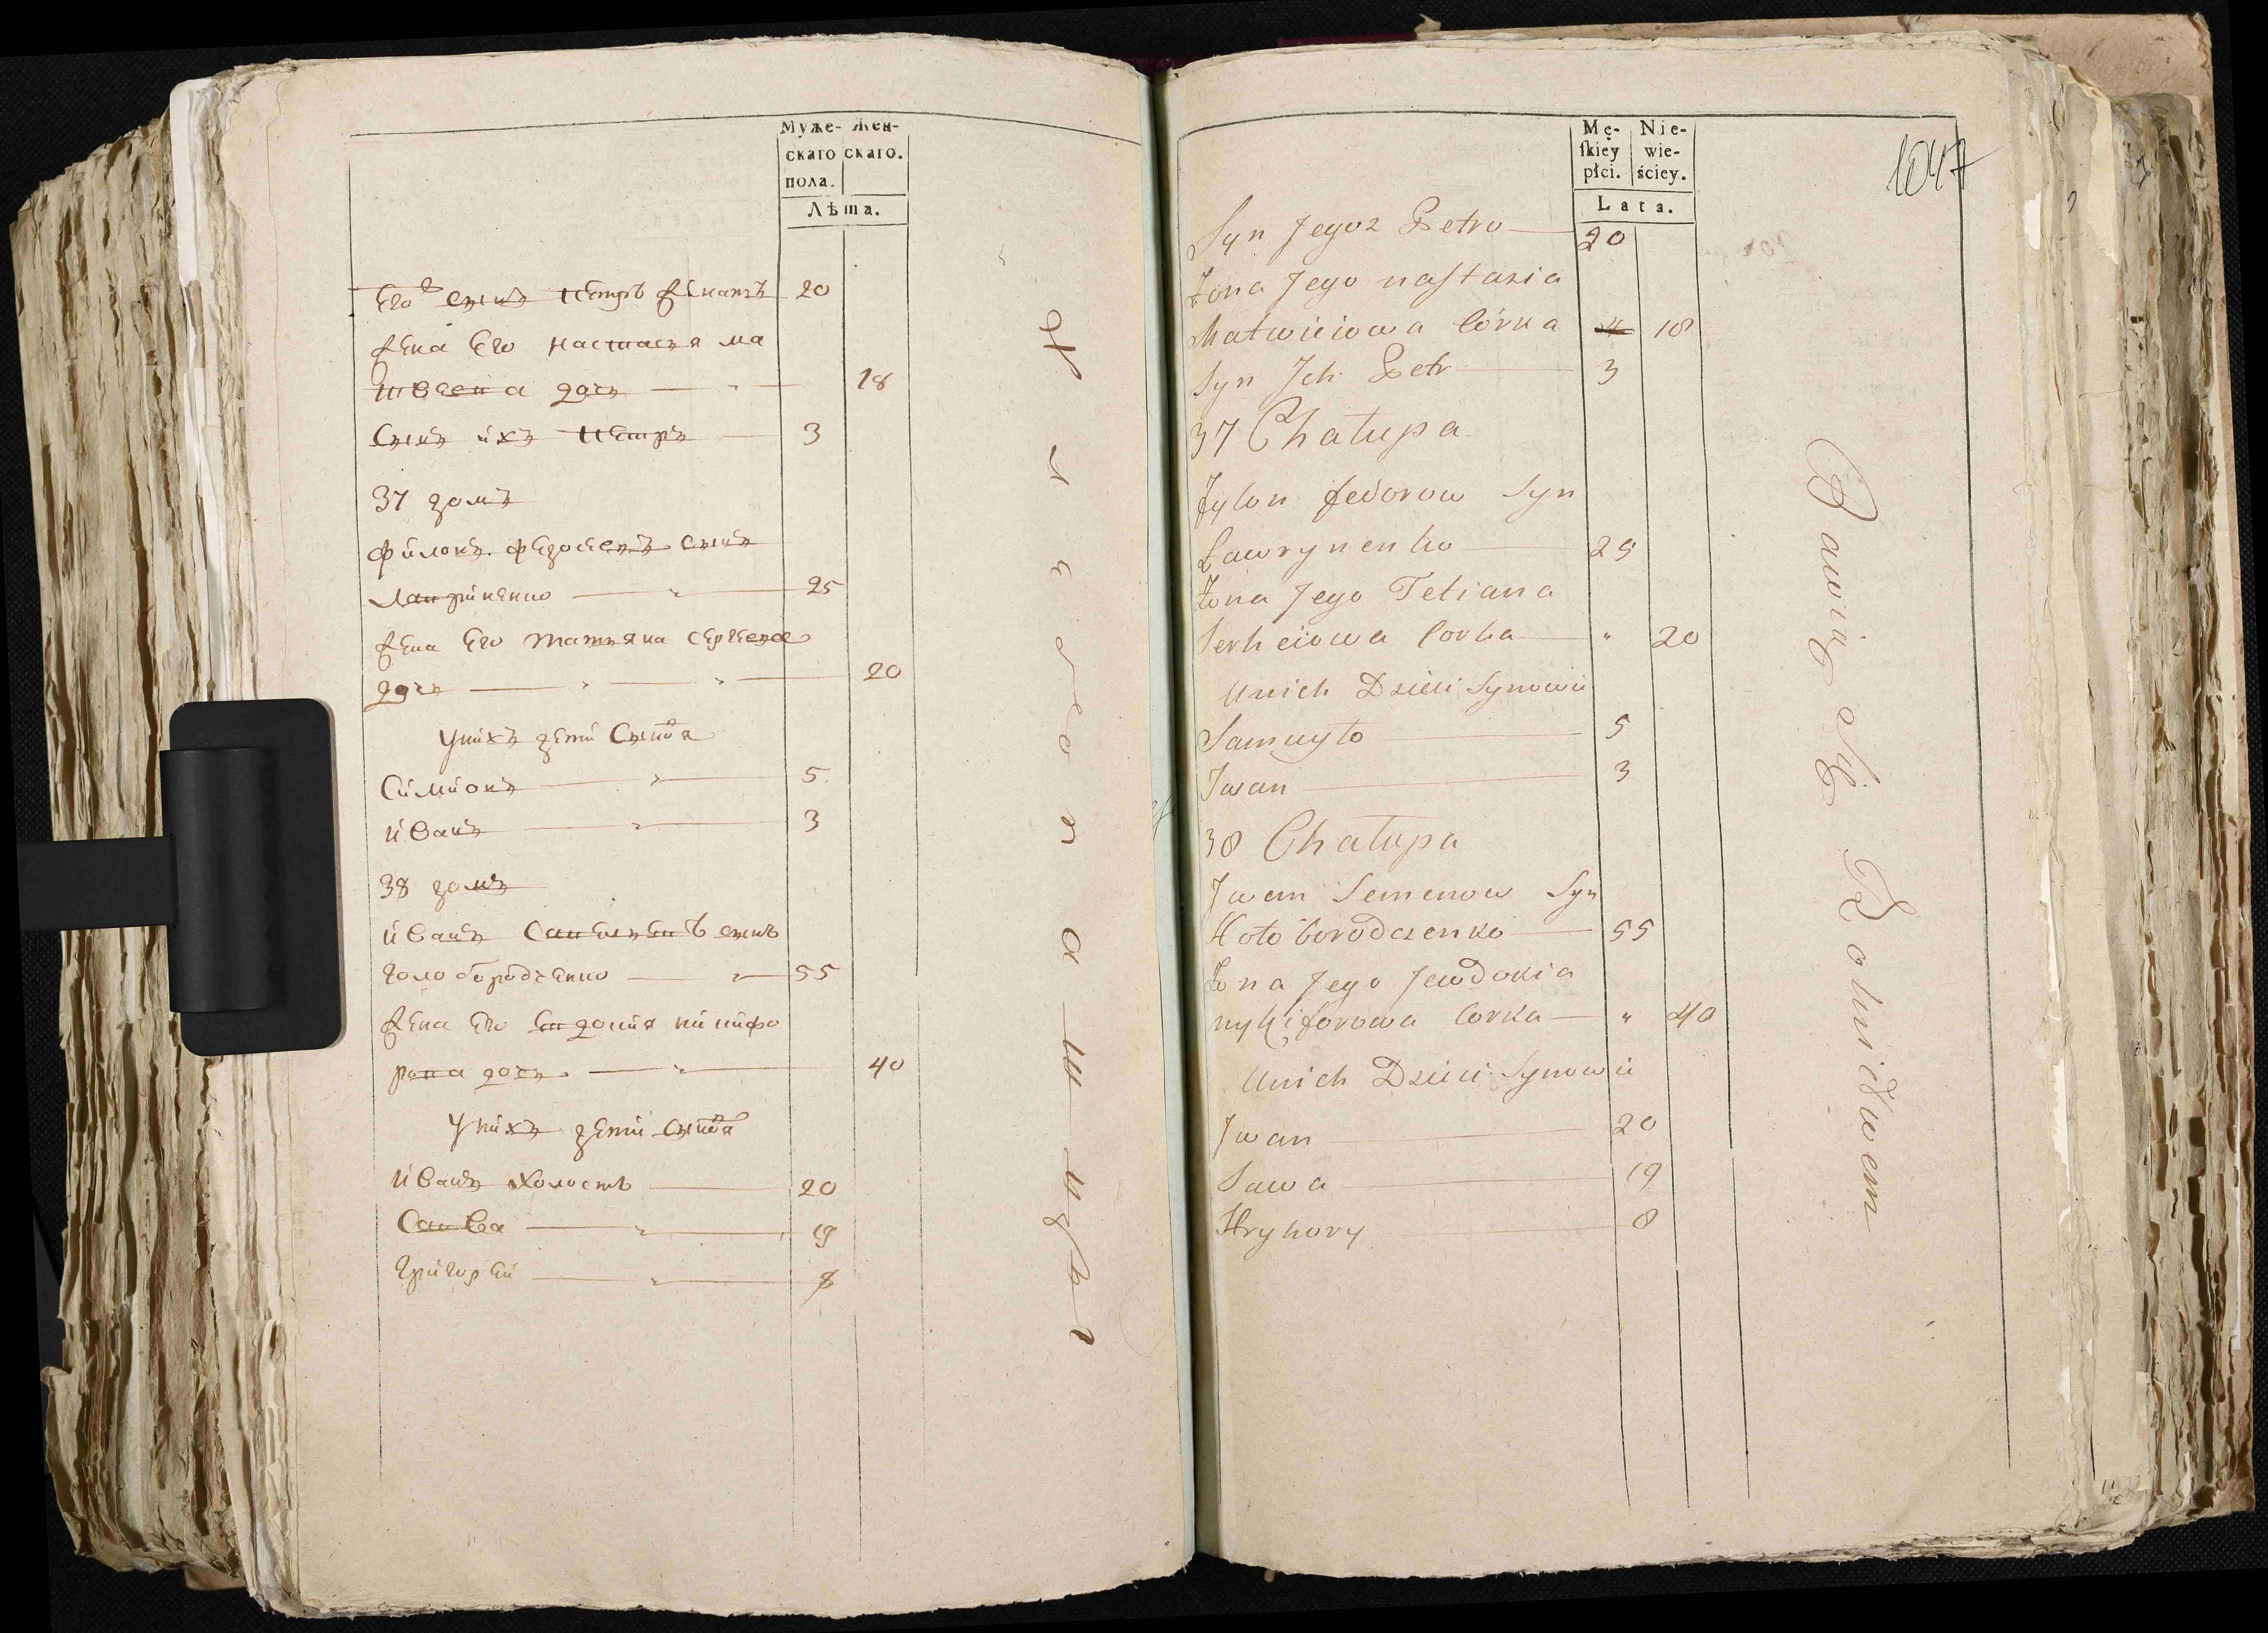 Муже- Жен-
скаго скаго.
пола.
Лѣта.
Его же сынъ Петръ женатъ 20
жена Его настасья ма
твеева дочь 18
Сынъ ихъ Петръ 3
37 домъ
филонъ федосеевъ сынъ
Лавриненко 25
жена Его татьяна сергеева
дочь 20
Унихъ дети Сынова
Симионъ 5
иванъ 3
38 домъ
иванъ сынъ
голобородченко 55
жена Его Евдокия никифо
рова дочь 40
Унихъ дети сынова
иванъ холостъ 20
Савва 19
григорей 8
Mę- Nie-
skiey wie-
płci. ściey.
Lata.
1047
Syn Jegoz Petro 20
Żona Jego nastazia
Matwieiowa Córka 4 18
Syn Ich Petr 3
37 Chałupa
Fylon fedorow Syn
Ławrynenko 25
Żona Jego Tetiana
Serheiowa Corka " 20
Unich Dzieci Synowie
Samuyło 5
Iwan 3
38 Chałupa
Iwan Semenow Syn
Hołoborodczenko 55
Żona Jego Jewdokia
nykiforowa Corka " 40
Unich Dzieci Synowie
Iwan 20
Sawa 19
Hryhory 8
Bawią Się Rolnictwem